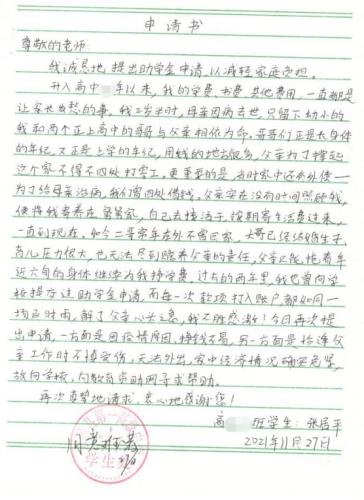 申请书
尊敬的老师:
我诚恳地提出助学金申请,以减轻家庭负担。
升入高中 年以来,我的学费、书费、其他费用,一直都是
让家长发愁的事。我三岁半时,母亲因病去世,只留下幼小的
我和两个正上高中的哥哥与父亲相依为命。哥哥们正是长身体
的年纪,又正是上学的年纪,用钱的地方颇多,父亲为了撑起
这个家不得不四处打零工。更重要的是,当时家中还有外债—
为了给母亲治病,我们曾四处借钱。父亲实在没有时间照顾我,
便将我寄养在舅舅家,自己去接活干,按期寄生活费过来,
一直到现在。如今二哥常年在外不曾回家,大哥已经结婚生子,
育儿压力很大,也无法尽到赡养父亲的责任,父亲只能拖着年
近六旬的身体继续为我挣学费。过去的两年里,我也曾向学
校提交过助学金申请,而每一次款项打入账户都如同一
场及时雨,解了父亲心头之急,我不胜感激!今日再次提
出申请,一方面是因疫情原因,挣钱不易,另一方面是恰逢父
亲工作时不慎受伤,无法外出,家中经济情况确实危急,
故向学校、向教育资助网寻求帮助。
再次真挚地请求,衷心地感谢您!
高 班学生:张居平
2021年11月27日